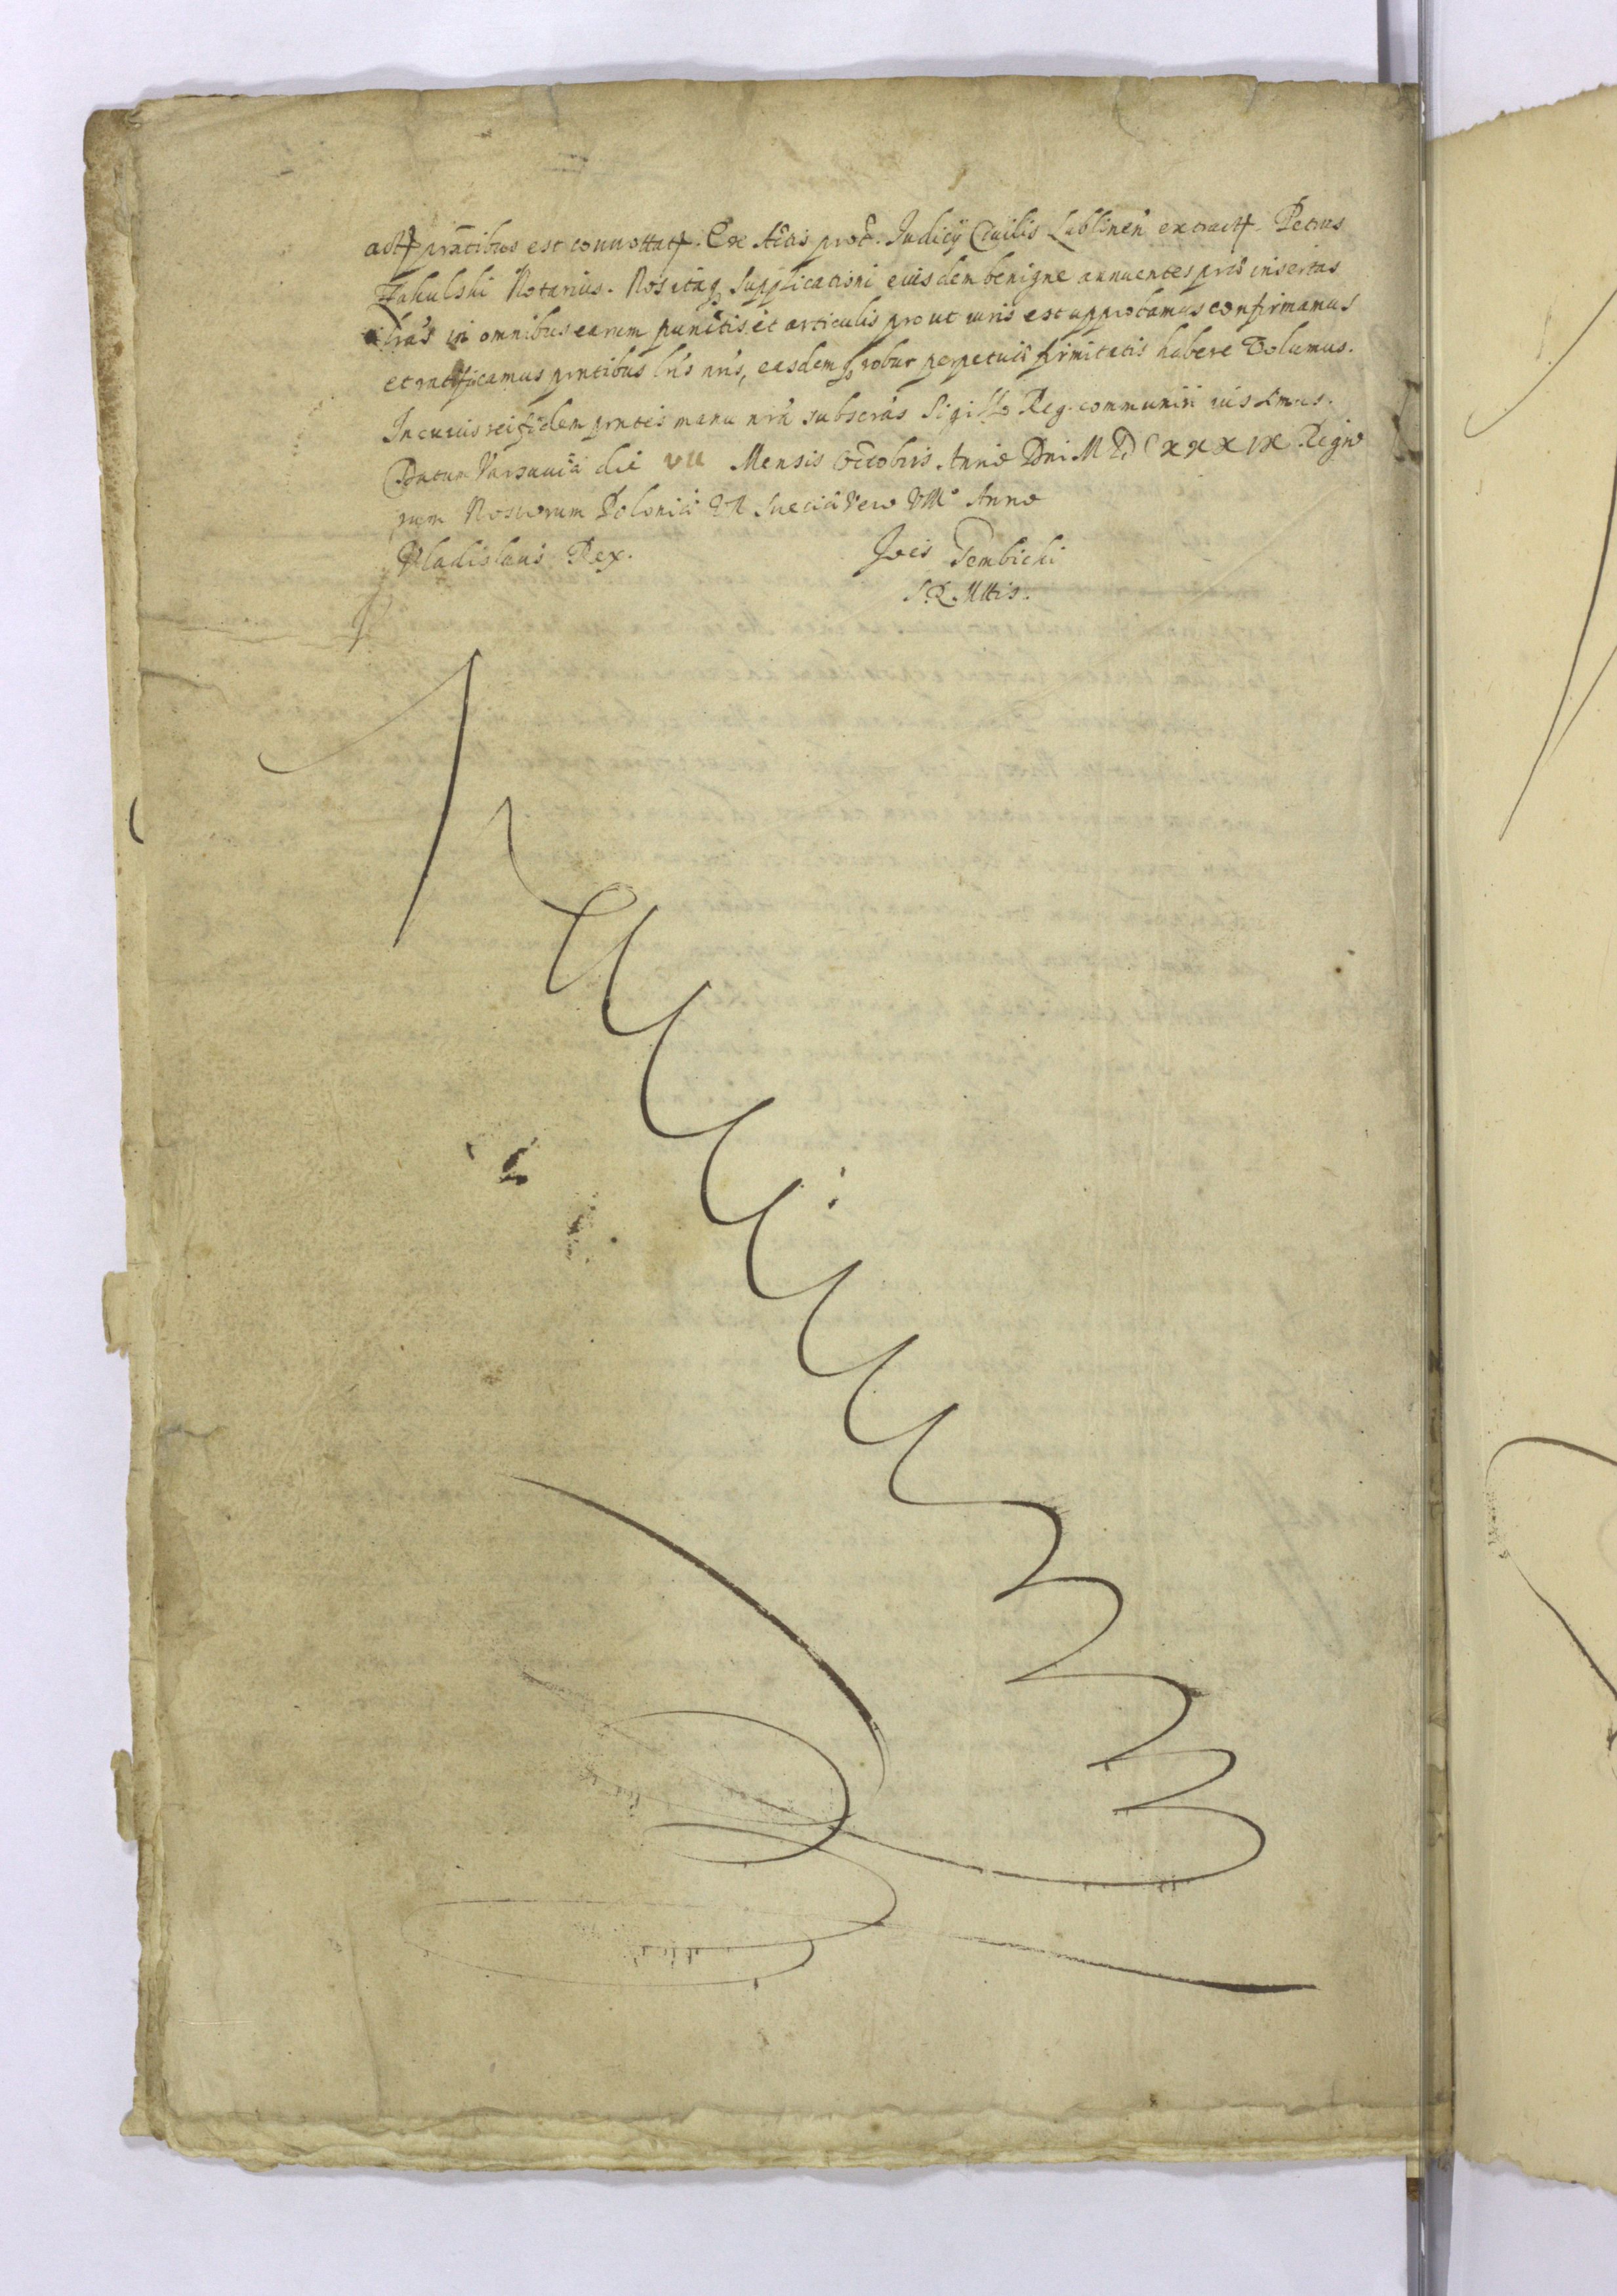 prñtibus est connottat. Ex Actis prot. Judicÿ Civilis Lublinen̄ extract. Petrus
Zakulski Notarius. Nos itaq Supplicationi eiusdem benigne annuentes prãs insertas
lr̃as in omnibus earum punctis et articulis prout iuris est approbamus confirmamus
et ratificamus prñtibus lris nr̃is, easdemq robur perpetuũ firmitatis habere Volumus.
In cuius rei fidem prñtes manu nr̃a subscrãs Sigillo Reg. communiri iussimus.
Datum Varsaviã die VII Mensis Octobris Anno Dni M DCXXXIX Regno
rum Nostrorum Poloniã VII Sueciã Vero VIIIº Anno
Vladislaus Rex. Joẽs Gembicki
S. R. Mttis.